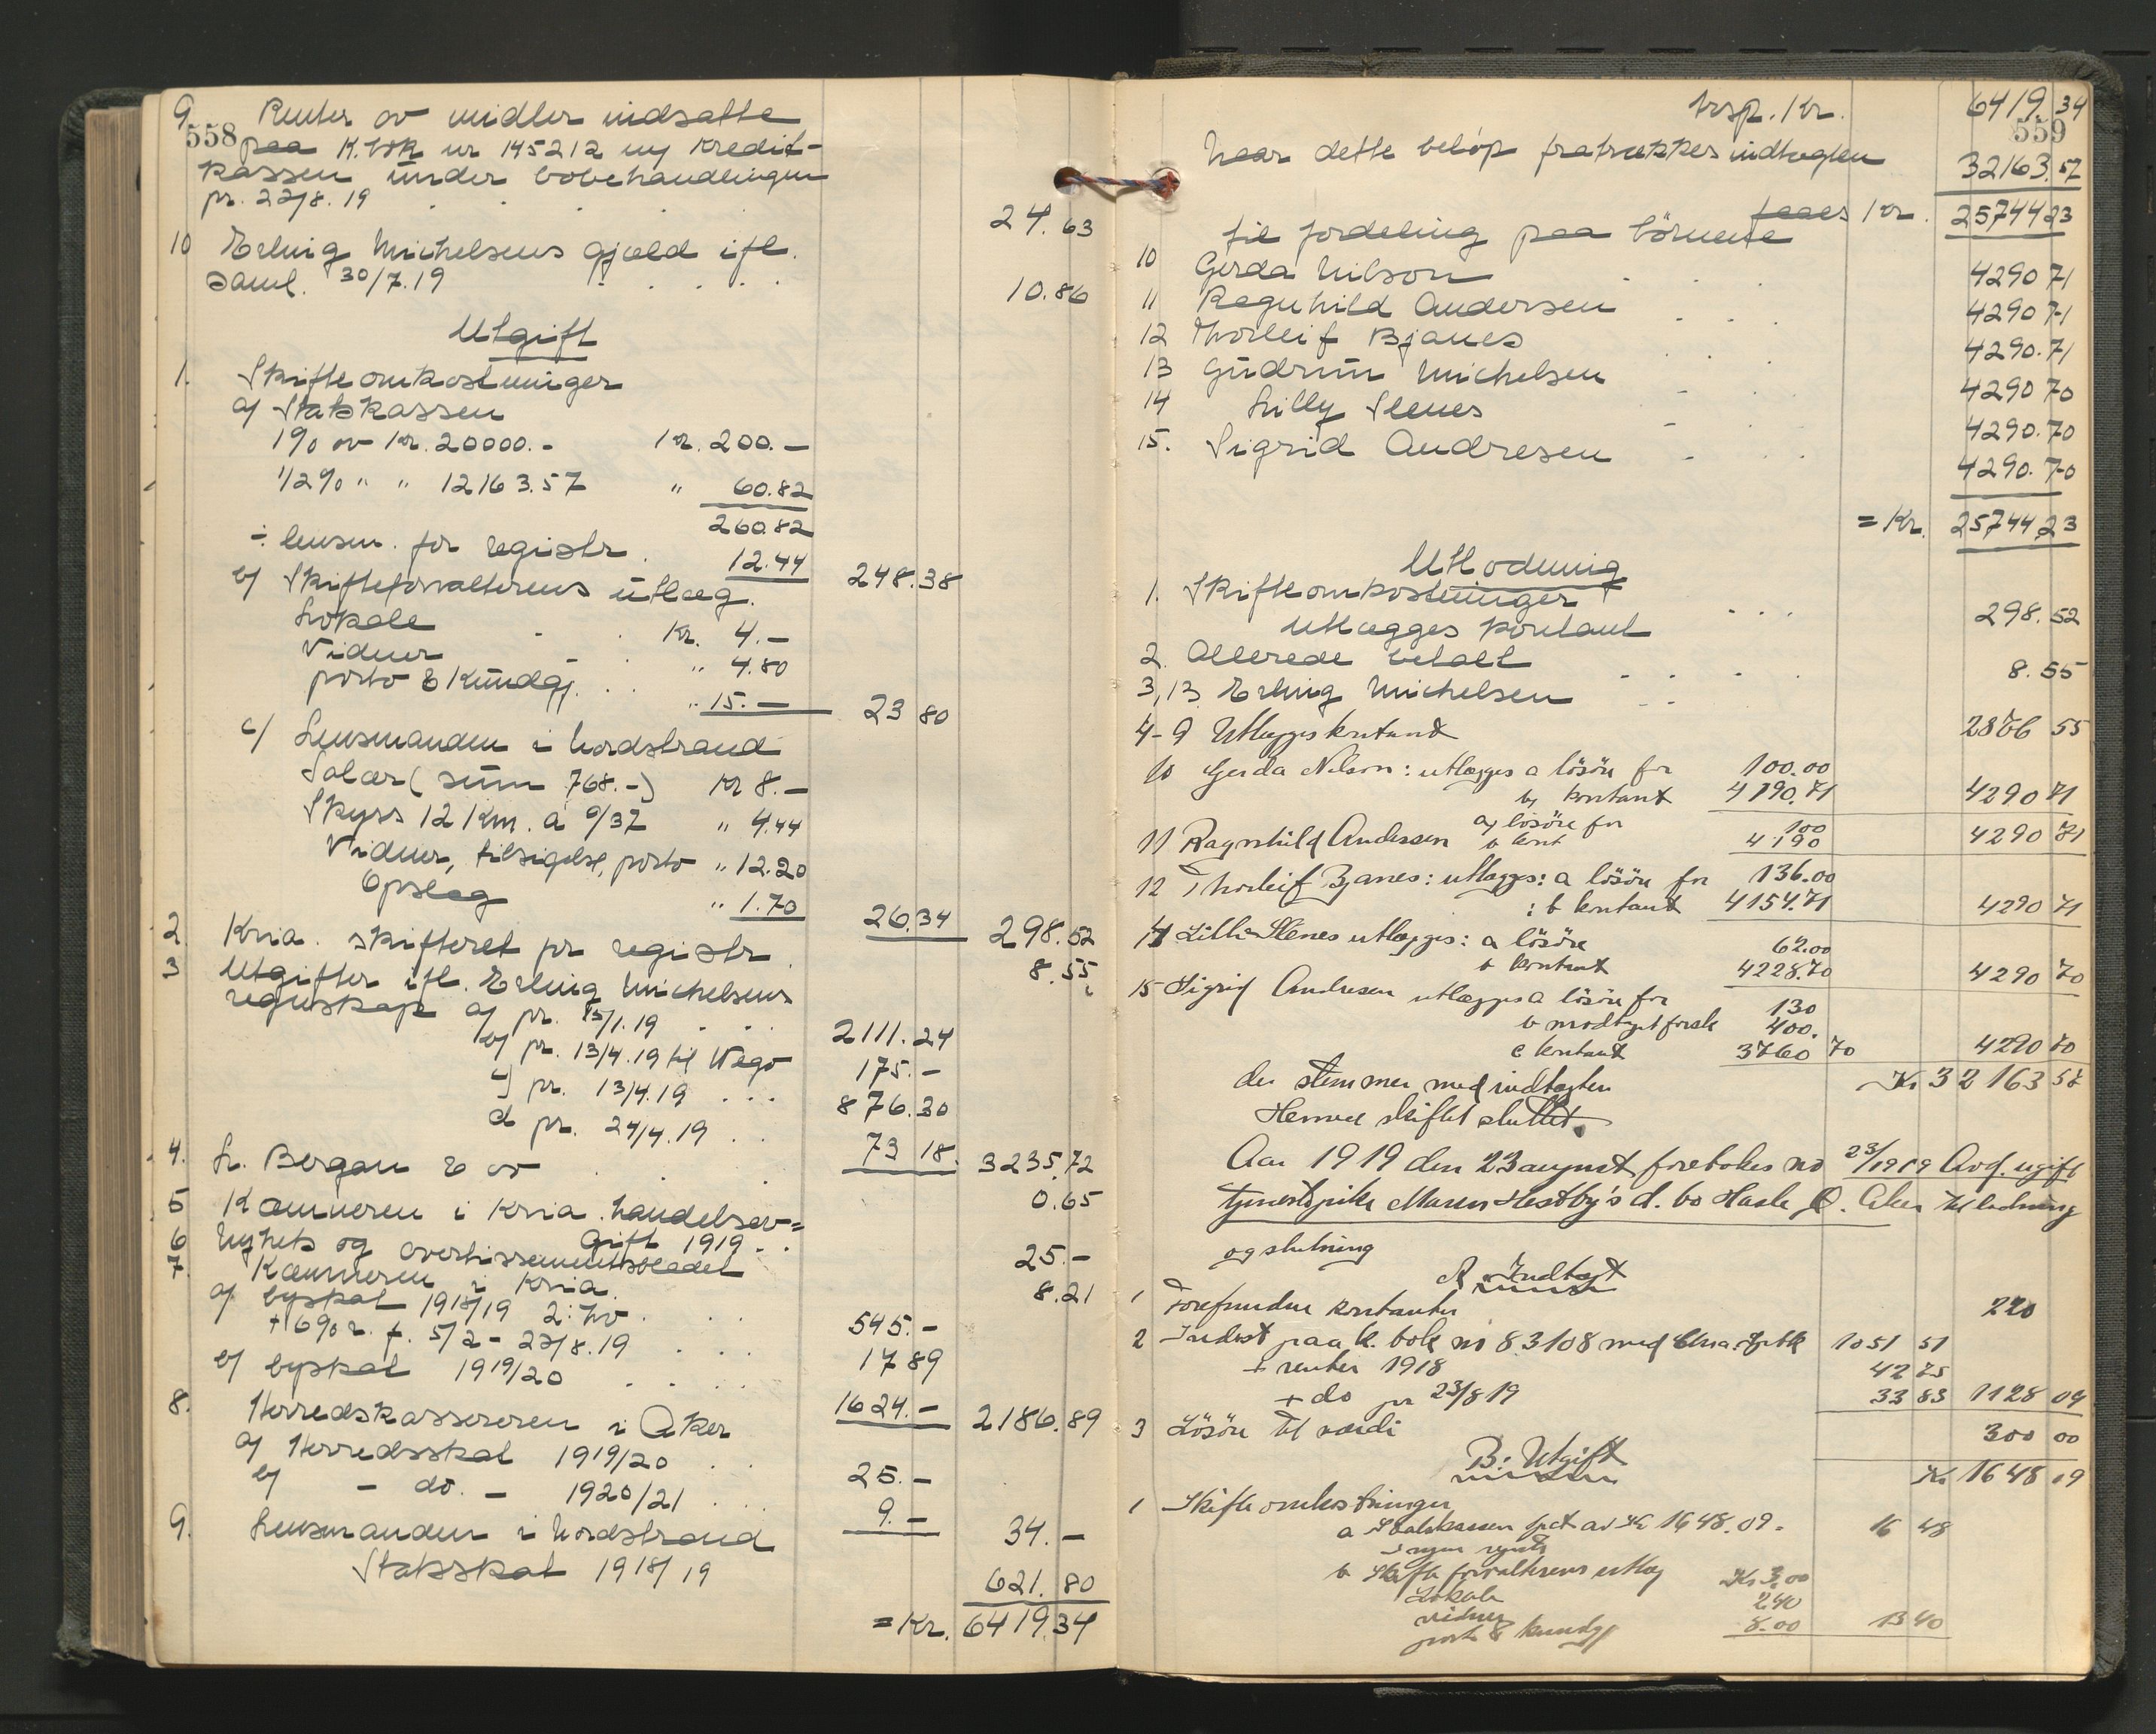 558
9 Renter av midler indsatte
paa K.bok nr 145212 ny Kredit-
kassen under bobehandlingen
pr. 22/8.19 . . . . 24.63
10 Erling Michelsens gjæld ifl.
saml. 30/7.19 . . . . 10.86
Utgift
1. Skifteomkostninger
a) Statskassen
1% av Kr. 20000.- Kr. 200.-
1/2% " " 12163.57 " 60.82
260.82
÷ lensm. for registr. 12.44 248.38
b) Skifteforvalterens utlæg.
Lokale . . Kr. 4.-
Vidner . . " 4.80
porto & Kundgj. . . " 15.- 23 80
c) Lensmanden i Nordstrand
Salær (sum 768.-) Kr 8.-
Skyss 12 Km. a 0/37 " 4.44
Vidner, tilsigelse, porto " 12.20
Opslag " 1.70 26.34 298.52
2. Kria. skifteret for registr. 8.55
3 Utgifter ifl. Erling Michelsens
regnskap a) pr. 15/1.19 . . . 2111.24
b) pr. 13/4.19 til Wego 175.-
c) pr. 13/4.19 . . . 876.30
d pr. 24/4.19 . . 73 18. 3235.72
4. L. Bergan & co . . 0.65
5 Kæmneren i Kria. handelsav=
gift 1919 . . 25.-
6 Nyhets og avertissementsbladet 8.21
7. Kæmneren i Kria.
a) byskat 1918/19 2: 545.-
+ 6% r. f. 5/2 - 23/8.19 . . . 17 89
b) byskat 1919/20 . . . . 1624.- 2186.89
8. Herredskassereren i Aker
a) Herredsskat 1919/20 . . 25.-
b) - do. - 1920/21 . . . 9.- 34.-
9. Lensmanden i Nordstrand
Statsskat 1918/19 621.80
= Kr. 6419.34
559
trsp. Kr. 6419.34
Naar dette beløp fratrækkes indtægten 32163.57
faaes Kr. 25744 23
til fordeling paa børnene
10 Gerda Nilson . . . 4290 71
11 Ragnhild Andersen . . . 4290 71
12 Thorleif Bjanes . . . 4290.71
13 Gudrun Michelsen . . . 4290 70
14 Lilly Stenes . . . 4290.70
15. Sigrid Andresen . . . 4290.70
= Kr. 25744 23
Utlodning
1. Skifteomkostninger . . . 298.52
Utlægges kontant
2. Allerede betalt . . . . 8.55
3,13 Erling Michelsen . . .
4-9 Utlægges kontant 2876 55
10 Gerda Nilson: utlægges a løsøre for 100.00
b) kontant 4190.71 4290 71
11 Ragnhild Andersen a) løsøre for 100
b kont 4190 4290 71
12 Thorleif Bjanes: utlægges: a løsøre for 136.00
: b kontant 4154.71 4290 71
14 Lilli Stenes utlægges: a løsøre 62.00
b kontant 4228.70 4290 70
15 Sigrid Andresen utlægges a løsøre for 130
b modtaget forsk 400.
c kontant 3760 70 4290 70
der stemmer med indtægten Kr 32163 57
Hermed skiftet sluttet.
Aar 1919 den 23 august foretokes no 23/1919 Avd. ugift
tjenestepike Maren Hestby's d. bo Hasle Ø. Aker til lodning
og slutning
A Indtægt
1 Forefundne kontanter 220
2 Indest paa k. bok no 83108 med Chra. Spbk 1051 51
+ renter 1918 42 75
+ do pr 23/8 19 33 83 1128 09
3 Løsøre til værdi 300 00
Kr 1648 09
B: Utgift
1 Skifteomkostninger
a Statskassen 1pct av Kr 1648.09. 16 48
b Skifteforvalterens utlæg
Lokale Kr 3.00
vidner 2.40
porto & kundgj 8.00 13 40